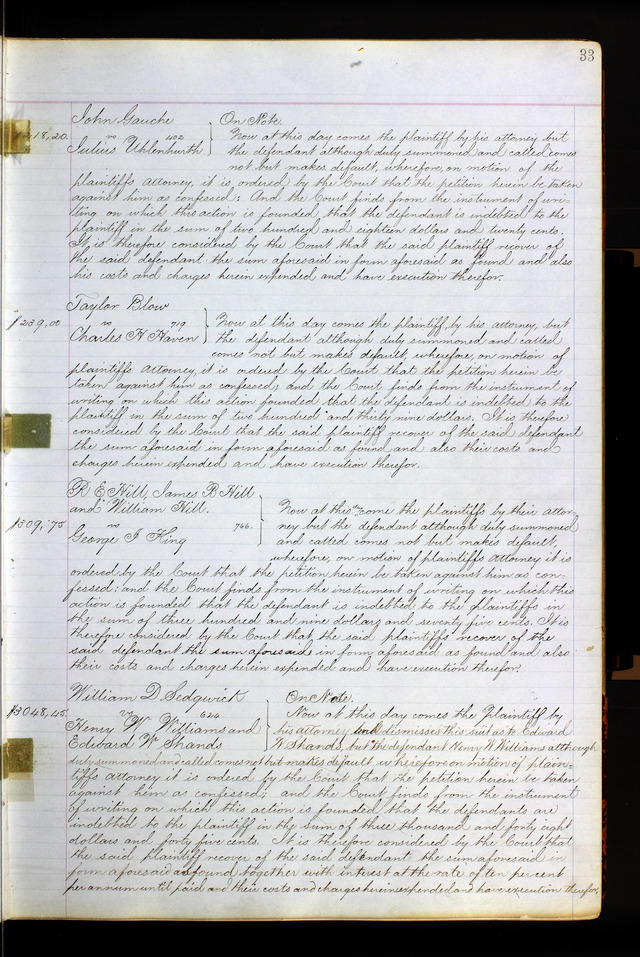 33
John Gauche On Note.
$218,20. vs 402 Now at this day comes the plaintiff by his attorney but
Julius Uhlenhurth the defendant although duly summoned and called comes
not but makes default, wherefore, on motion of the
plaintiffs attorney, it is ordered by the Court that the petition herein be taken
against him as confessed: And the Court finds from the instrument of wri-
ting on which this action is founded, that the defendant is indebted to the
plaintiff in the sum of two hundred and eighteen dollars and twenty cents.
It is therefore considered by the Court that the said plaintiff recover of
the said defendant the sum aforesaid in form aforesaid as found and also
his costs and charges herein expended and have execution therefor.
Taylor Blow
$239,00 vs 719 Now at this day comes the plaintiff, by his attorney, but
Charles H Haven the defendant although duly summoned and called
comes not but makes default, wherefore, on motion of
plaintiffs attorney, it is ordered by the Court that the petition herein be
taken against him as confessed; and the Court finds from the instrument of
writing on which this action founded that the defendant is indebted to the
plaintiff in the sum of two hundred and thirty nine dollars. It is therefore
considered by the Court that the said plaintiff recover of the said defendant
the sum aforesaid in form aforesaid as found and also their costs and
charges herein expended and have execution therefor.
R E Hill, James B Hill
and William Hill. Now at this day come the plaintiffs by their attor-
$309,75 vs 766. ney but the defendant although duly summoned
George I King and called comes not but makes default,
wherefore, on motion of plaintiffs attorney it is
ordered by the Court that the petition herein be taken against him as con-
fessed; and the Court finds from the instrument of writing on which this
action is founded that the defendant is indebted to the plaintiffs in
the sum of three hundred and nine dollars and seventy five cents. It is
therefore considered by the Court that the said plaintiffs recover of the
said defendant the sum aforesaid in form aforesaid as found and also
their costs and charges herein expended and have execution therefor.
William D Sedgwick On Note.
$3048,45. vs 624 Now at this day comes the Plaintiff by
Henry W Williams and his attorney and dismisses this suit as to Edward
Edward W Shands W Shands, but the defendant Henry W Williams although
duly summoned and called comes not but makes default wherefore on motion of plain-
tiffs attorney it is ordered by the Court that the petition herein be taken
against him as confessed; and the Court finds from the instrument
of writing on which this action is founded that the defendants are
indebted to the plaintiff in the sum of three thousand and forty eight
dollars and forty five cents. It is therefore considered by the Court that
the said plaintiff recover of the said defendant the sum aforesaid in
form aforesaid as found together with interest at the rate of ten per cent
per annum until paid and their costs and charges herein expended and have execution therefor.